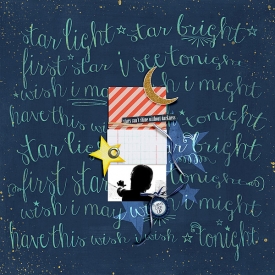 star light star bright
first star i see tonight
wish i may wish i might
have this wish i wish tonight
stars can't shine without darkness
star light star bright
first star i see tonight
wish i may wish i might
have this wish i wish tonight